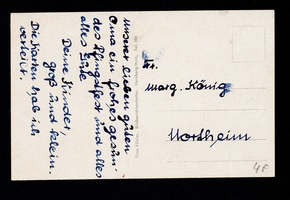 unserer lieben guten
Oma ein frohes gesun-
des Pfingstfest und alles
alles Gute
Deine Kinder,
groß und klein.
Die Karten hab ich
verteilt.
Fr.
Marg. König
Northeim